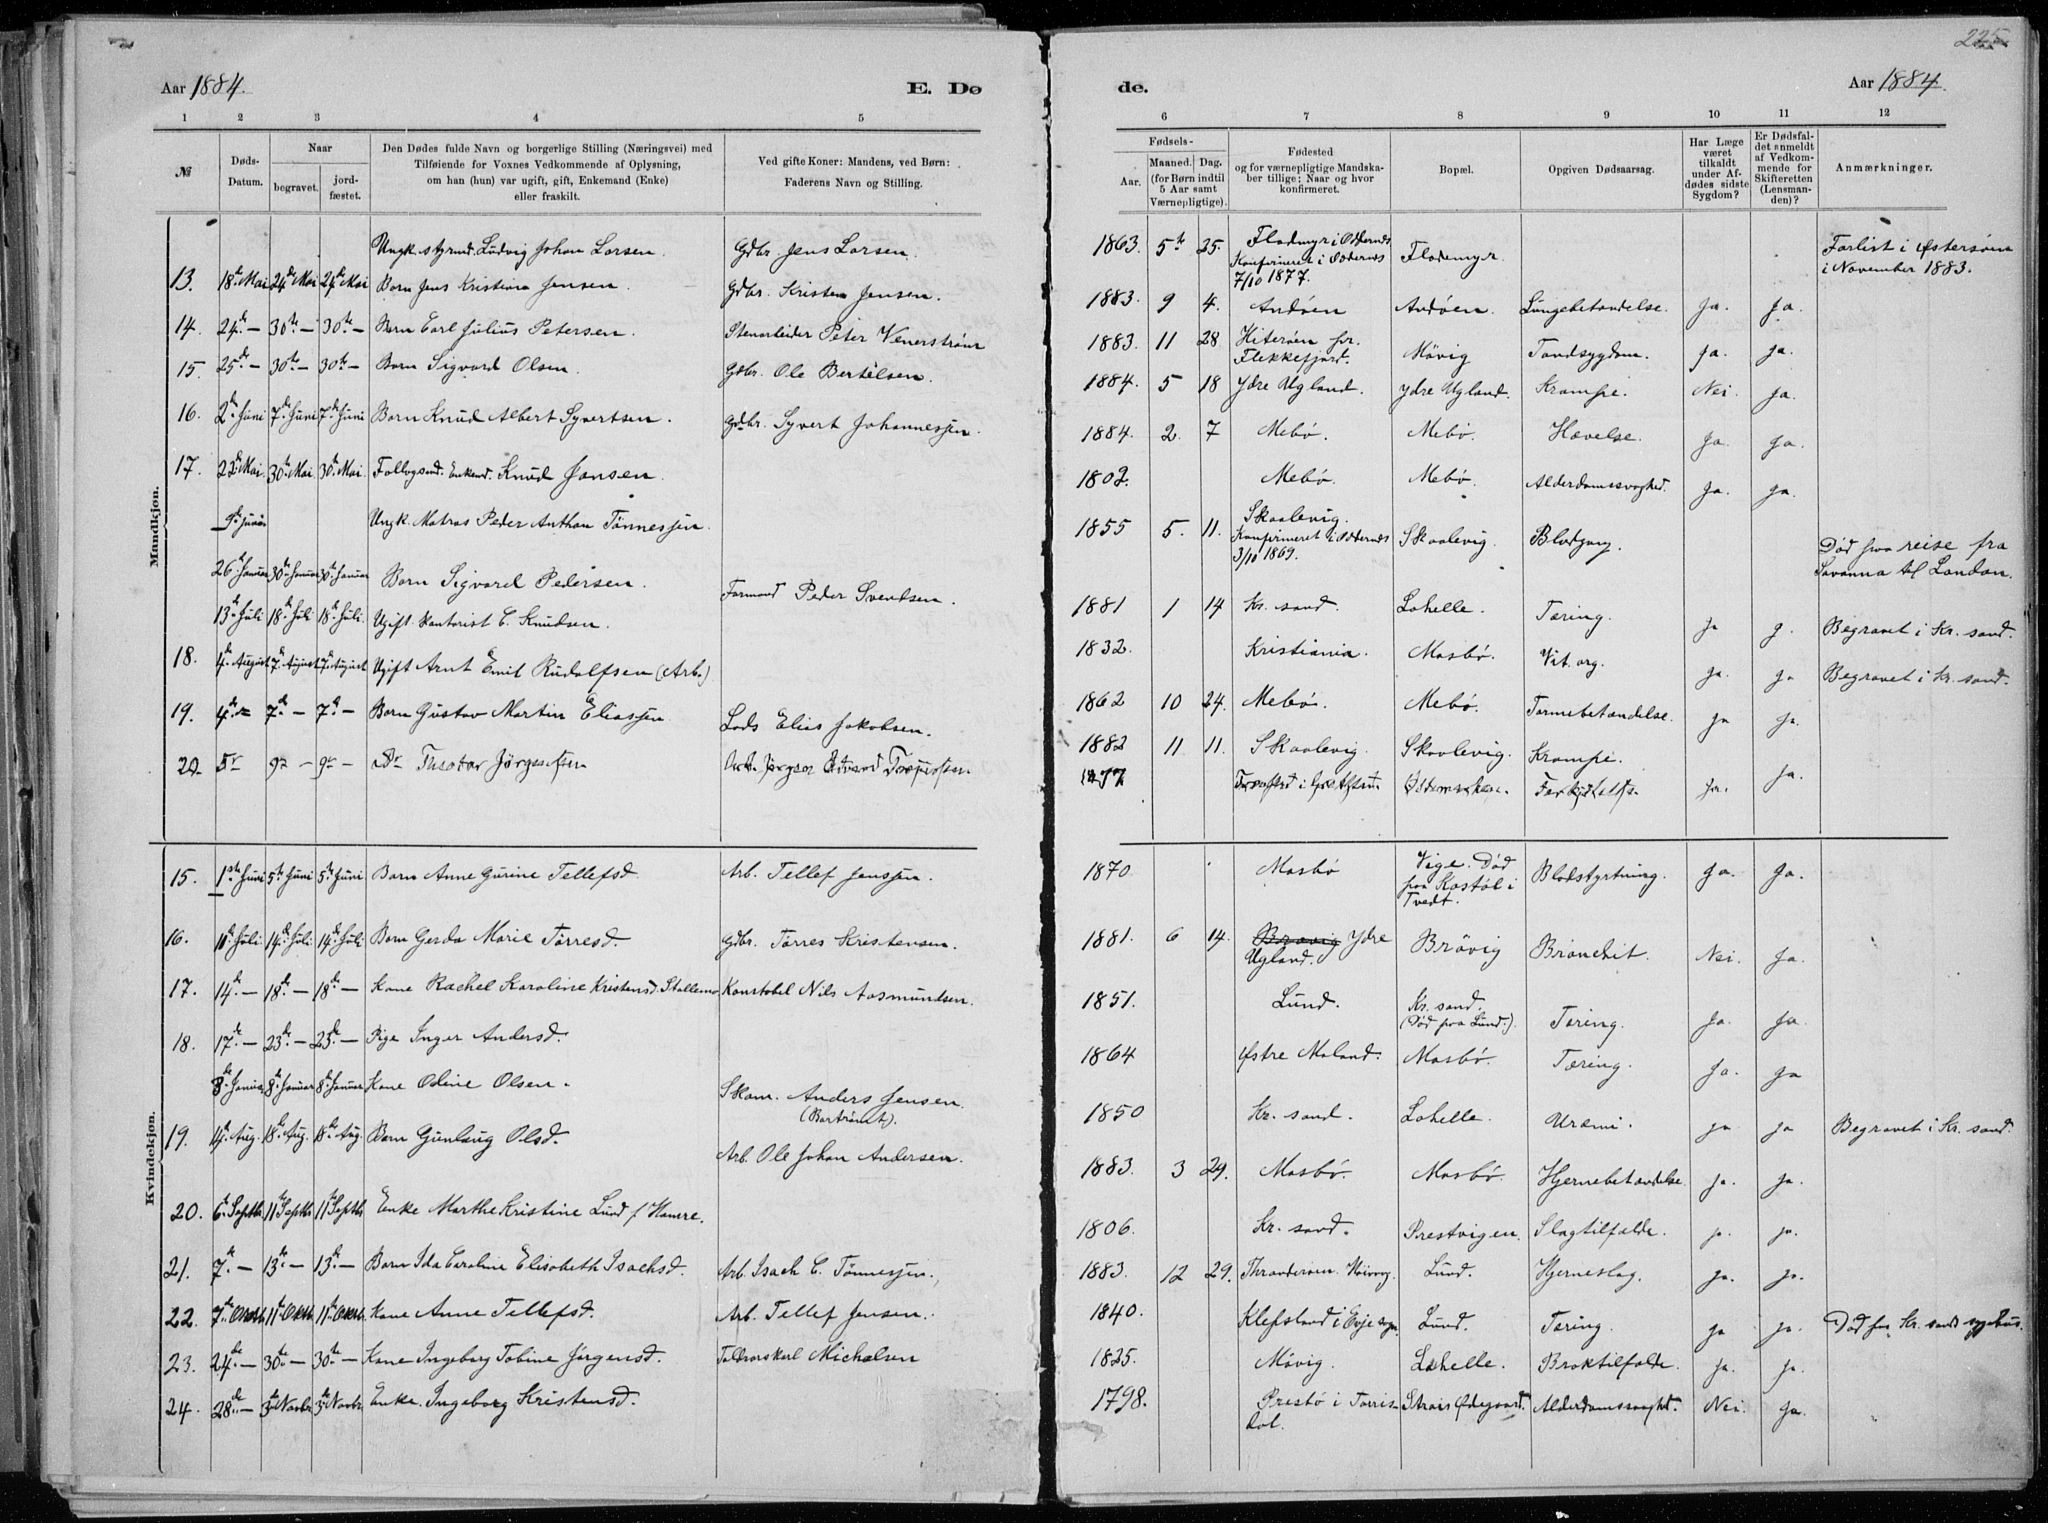 225
Aar 1884.
E. Dø
de.
Aar 1884.
1 2 3 4 5 6 7 8 9 10 11 12
№
Døds-Datum.
Naar
begravet.
jord-fæstet.
Den Dødes fulde Navn og borgerlige Stilling (Næringsvei) med
Tilføiende for Voxnes Vedkommende af Oplysning,
om han (hun) var ugift, gift, Enkemand (Enke)
eller fraskilt.
Ved gifte Koner: Mandens, ved Børn:
Faderens Navn og Stilling.
Fødsels-
Aar.
Maaned. Dag.
(for Børn indtil
5 Aar samt
Værnepligtige).
Fødested
og for værnepligtige Mandska-
ber tillige: Naar og hvor
konfirmeret.
Bopæl.
Opgiven Dødsaarsag.
Har Læge
været
tilkaldt
under Af-
dødes sidste
Sygdom?
Er Dødsfal-
det anmeldt
af Vedkom-
mende for
Skifteretten
(Lensman-
den)?
Anmærkninger.
Mandkjøn.
Ungk. styrmd. Ludvig Johan Larsen. Gdbr. Jens Larsen. 1863. 5te 25. Flodmyr i Oddernes Konfirmeret i Oddernes 7/10 1877. Flodemyr. Forlist i Østersøen i November 1883.
13. 18de Mai 24de Mai 24de Mai Barn Jens Kristian Jensen. Gdbr. Kristen Jensen. 1883. 9 4. Andøen Andøen. Lungebetændelse. Ja. Ja.
14. 24de — 30te — 30te — Barn Carl Julius Petersen. Stenarbeider Peter Venerstrøm 1883. 11 28. Hiterøen pr. Flekkefjord. Møvig Tandsygdom. Ja. Ja.
15 25de — 30te — 30te — Barn Sigvard Olsen. Gdbr. Ole Bertelsen. 1884. 5 18 Ydre Ugland. Ydre Ugland. Krampe. Nei. Ja.
16. 2den Juni 7de Juni 7de Juni Barn Knud Albert Syvertsen. Gdbr. Syvert Johannessen. 1884. 2. 7 Mebø. Mebø. Hævelse. Ja. Ja.
17. 22de Mai. 30te Mai. 30te Mai. Follogsmd. Enkemd. Knud Jensen. 1802. Mebø. Mebø. Alderdomssvaghed. Ja. Ja.
Ungk. Matros Peder Anthon Tønnessen. 1855 5. 11. Skaalevig. Konfirmeret i Oddernes 3/10 1869. Skaalevig. Blodgang. Død paa reise fra Savanna til London.
26de Januar 30te Januar 30te Januar Barn Sigvard Pedersen. Formand Peder Svendsen. 1881 1 14 Kr. sand. Lahelle. Tæring. Ja J. Begravet i Kr. sand.
13de Juli 18de Juli 18de Juli. Ugift. Kontorist C. Knudsen. 1832. Kristiania. Mosbø. Vit. org. Ja. Ja Begravet i Kr. sand.
18. 4de August 7de August 7de August Ugift Arnt Emil Rudolfsen (Arb.) 1862 10 24. Mebø. Mebø. Tarmebetændelse. Ja Ja.
19. 4de — 7de — 7de — Barn Gustav Martin Eliassen. Lods Elias Jakobsen. 1882 11 11. Skaalevig. Skaalevig. Krampe. Ja.
20. 5r 9r — 9r — Dr Ja.
Kvindekjøn.
15. 1ste Juni 5te Juni 5te Juni Barn Anne Gurine Tellefsd. Arb. Tellef Jenssen. 1870 Mosbø Vige. Død paa Kostøl i Tvedt. Blodstyrtning. Ja. Ja.
16. 10de Juli. 14de Juli 14de Juli Barn Gerda Marie Tørresd. Gdbr. Tørres Kristensen. 1881. 6 14. Brøvig Ydre Ugland. Brøvig Bronchit. Nei. Ja.
17. 14de — 18de — 18de — Kone Rachel Karoline Kristensd. Stallemo Konstabel Nils Aasmundsen. 1851. Lund. Kr. sand. (Død paa Lund.). Tæring. Ja. Ja.
18. 17de — 23de — 23de — Pige Inger Andersd. 1864 Østre Moland. Mosbø. Tæring. Ja. Ja
8de Januar 8de Januar 8de Januar Kone Odine Olsen. Skom. Anders Jensen. (Bortrømt). 1850 Kr. sand. Lahelle. Uræmi. Ja Ja Begravet i Kr. sand.
19. 14de Aug. 18de Aug. 18de Aug. Barn Gunlaug Olsd. Arb. Ole Johan Andersen. 1883. 3 29. Mosbø. Mosbø. Hjernebetændelse. Ja. Ja.
20. 6te Septb. 11te Septb. 11te Septb. Enke Marthe Kristine Lund f. Hamre. 1806. Kr. sand. Prestvigen. Slagtilfælde. J. Ja.
21. 7de — 13de — 13de — Barn Ida Caroline Elisabeth Isachsd. Arb. Isach C. Tønnessen. 1883. 12 29. Lund. Hjerneslag. Ja. Ja.
22. 7de Oktbr. 11te Oktb. 11te Oktb. Kone Anne Tellefsd. Arb. Tellef Jensen. 1840. Klefsland i Evje sogn. Lund. Tæring. Ja Ja. Død paa Kr. sands sygehus.
23. 24de — 30te — 30te — Kone Ingeborg Tobine Jørgensd. Toldvorskarl Michalsen 1825. Møvig. Lahelle. Broktilfælde. Ja. Ja.
24. 28de — 3die Novbr. 3die Novbr. Enke. Ingeborg Kristensd. 1798. Prestø i Torrisdal. Strais Ødegaard. Alderdomssvaghed. Nei. Ja.